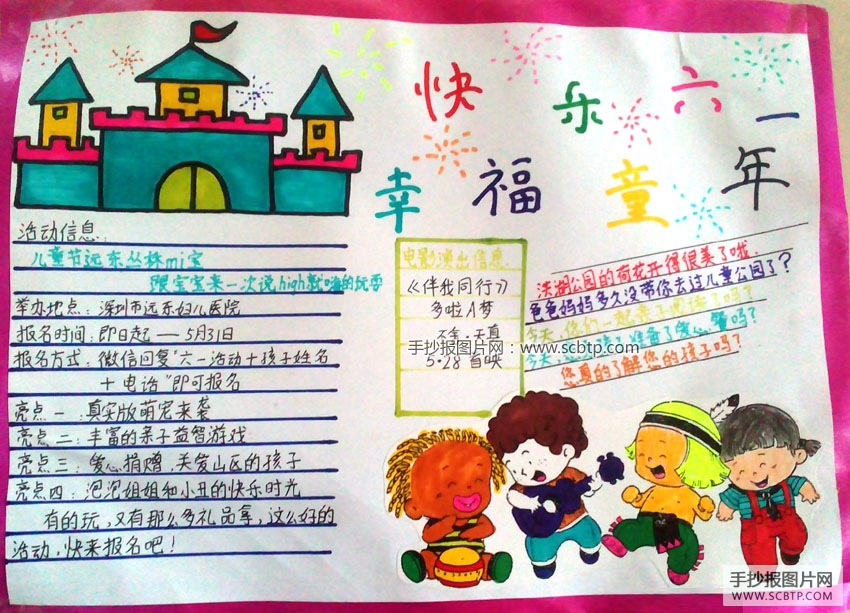 快乐六一
幸福童年
活动信息:
儿童节远东丛林mi宝
跟宝宝来一次说high就嗨的玩耍
举办地点:深圳市远东妇儿医院
报名时间:即日起——5月31日
报名方式:微信回复"六一活动+孩子姓名
+电话"即可报名
亮点一:真实版萌宠来袭
亮点二:丰富的亲子益智游戏
亮点三:爱心捐赠,关爱山区的孩子
亮点四:泡泡姐姐和小丑的快乐时光
有的玩,又有那么多礼品享,这么好的
活动,快来报名吧!
电影演出信息
《伴我同行》
多啦A梦
5·28 首映
洪湖公园的荷花开得很美了哦.
爸爸妈妈多久没带你去过儿童公园了?
今天,你们一起亲子阅读了吗?
今天,准备了爱心餐吗?
您真的了解您的孩子吗?
手抄报图片网:www.scbtp.com
手抄报图片网
WWW.SCBTP.COM